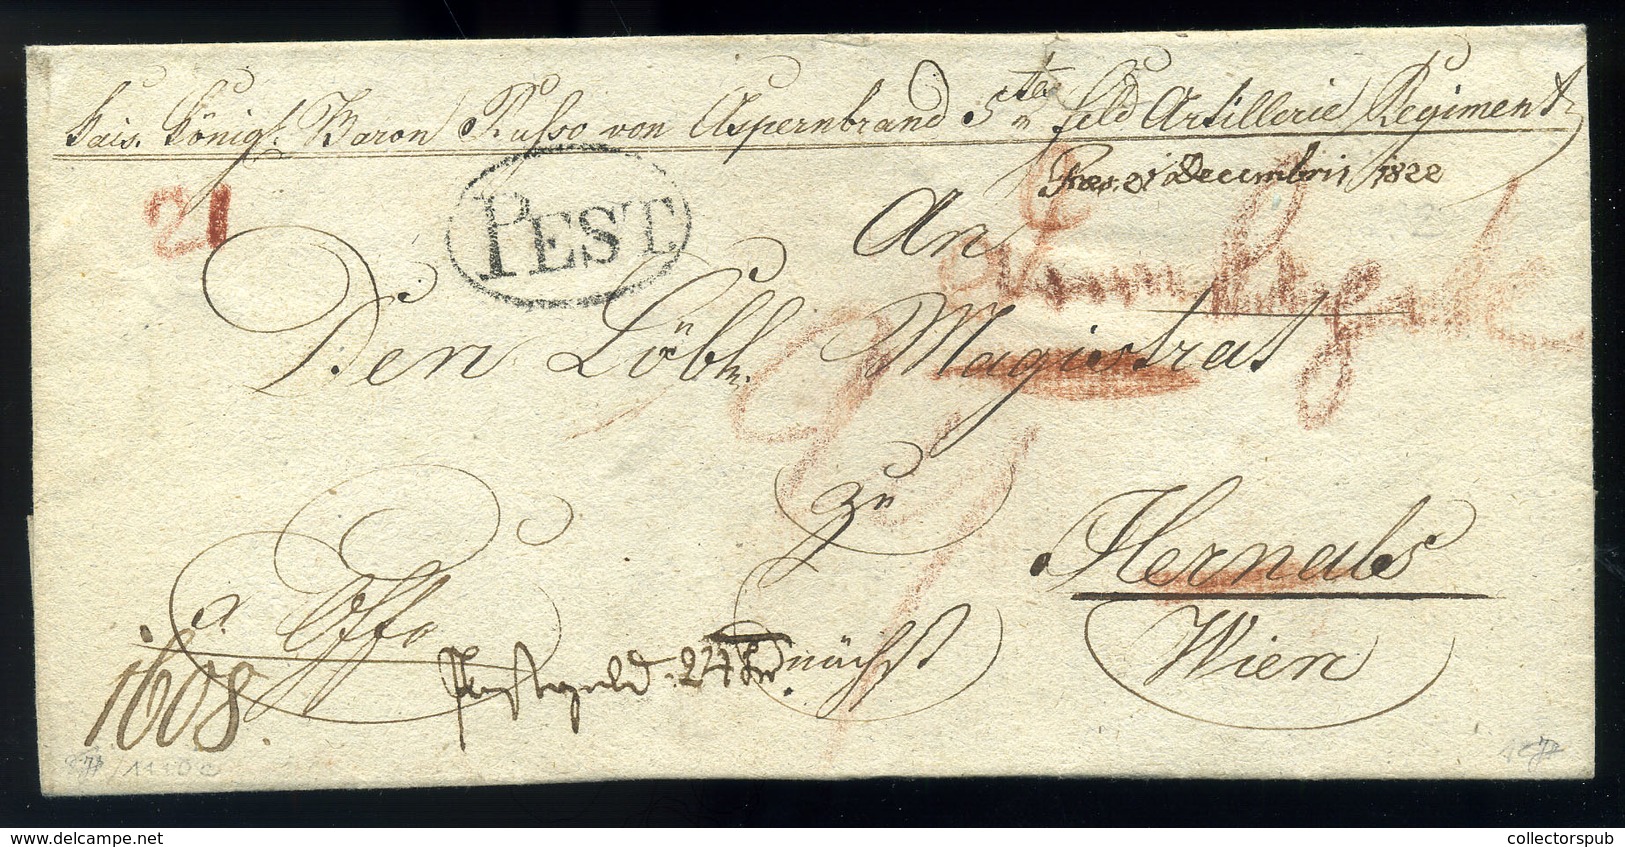 Kais. Königl. Baron Russo von Aspernbrand 5te Feld Artillerie Regiment
Pres. 21 Decembris 1822
21
PEST.
An
Den Löbln. Magistrat
zu
Hernals
nächst Wien
Offo
1608.
Postgeld 24 Kr
collectorspub